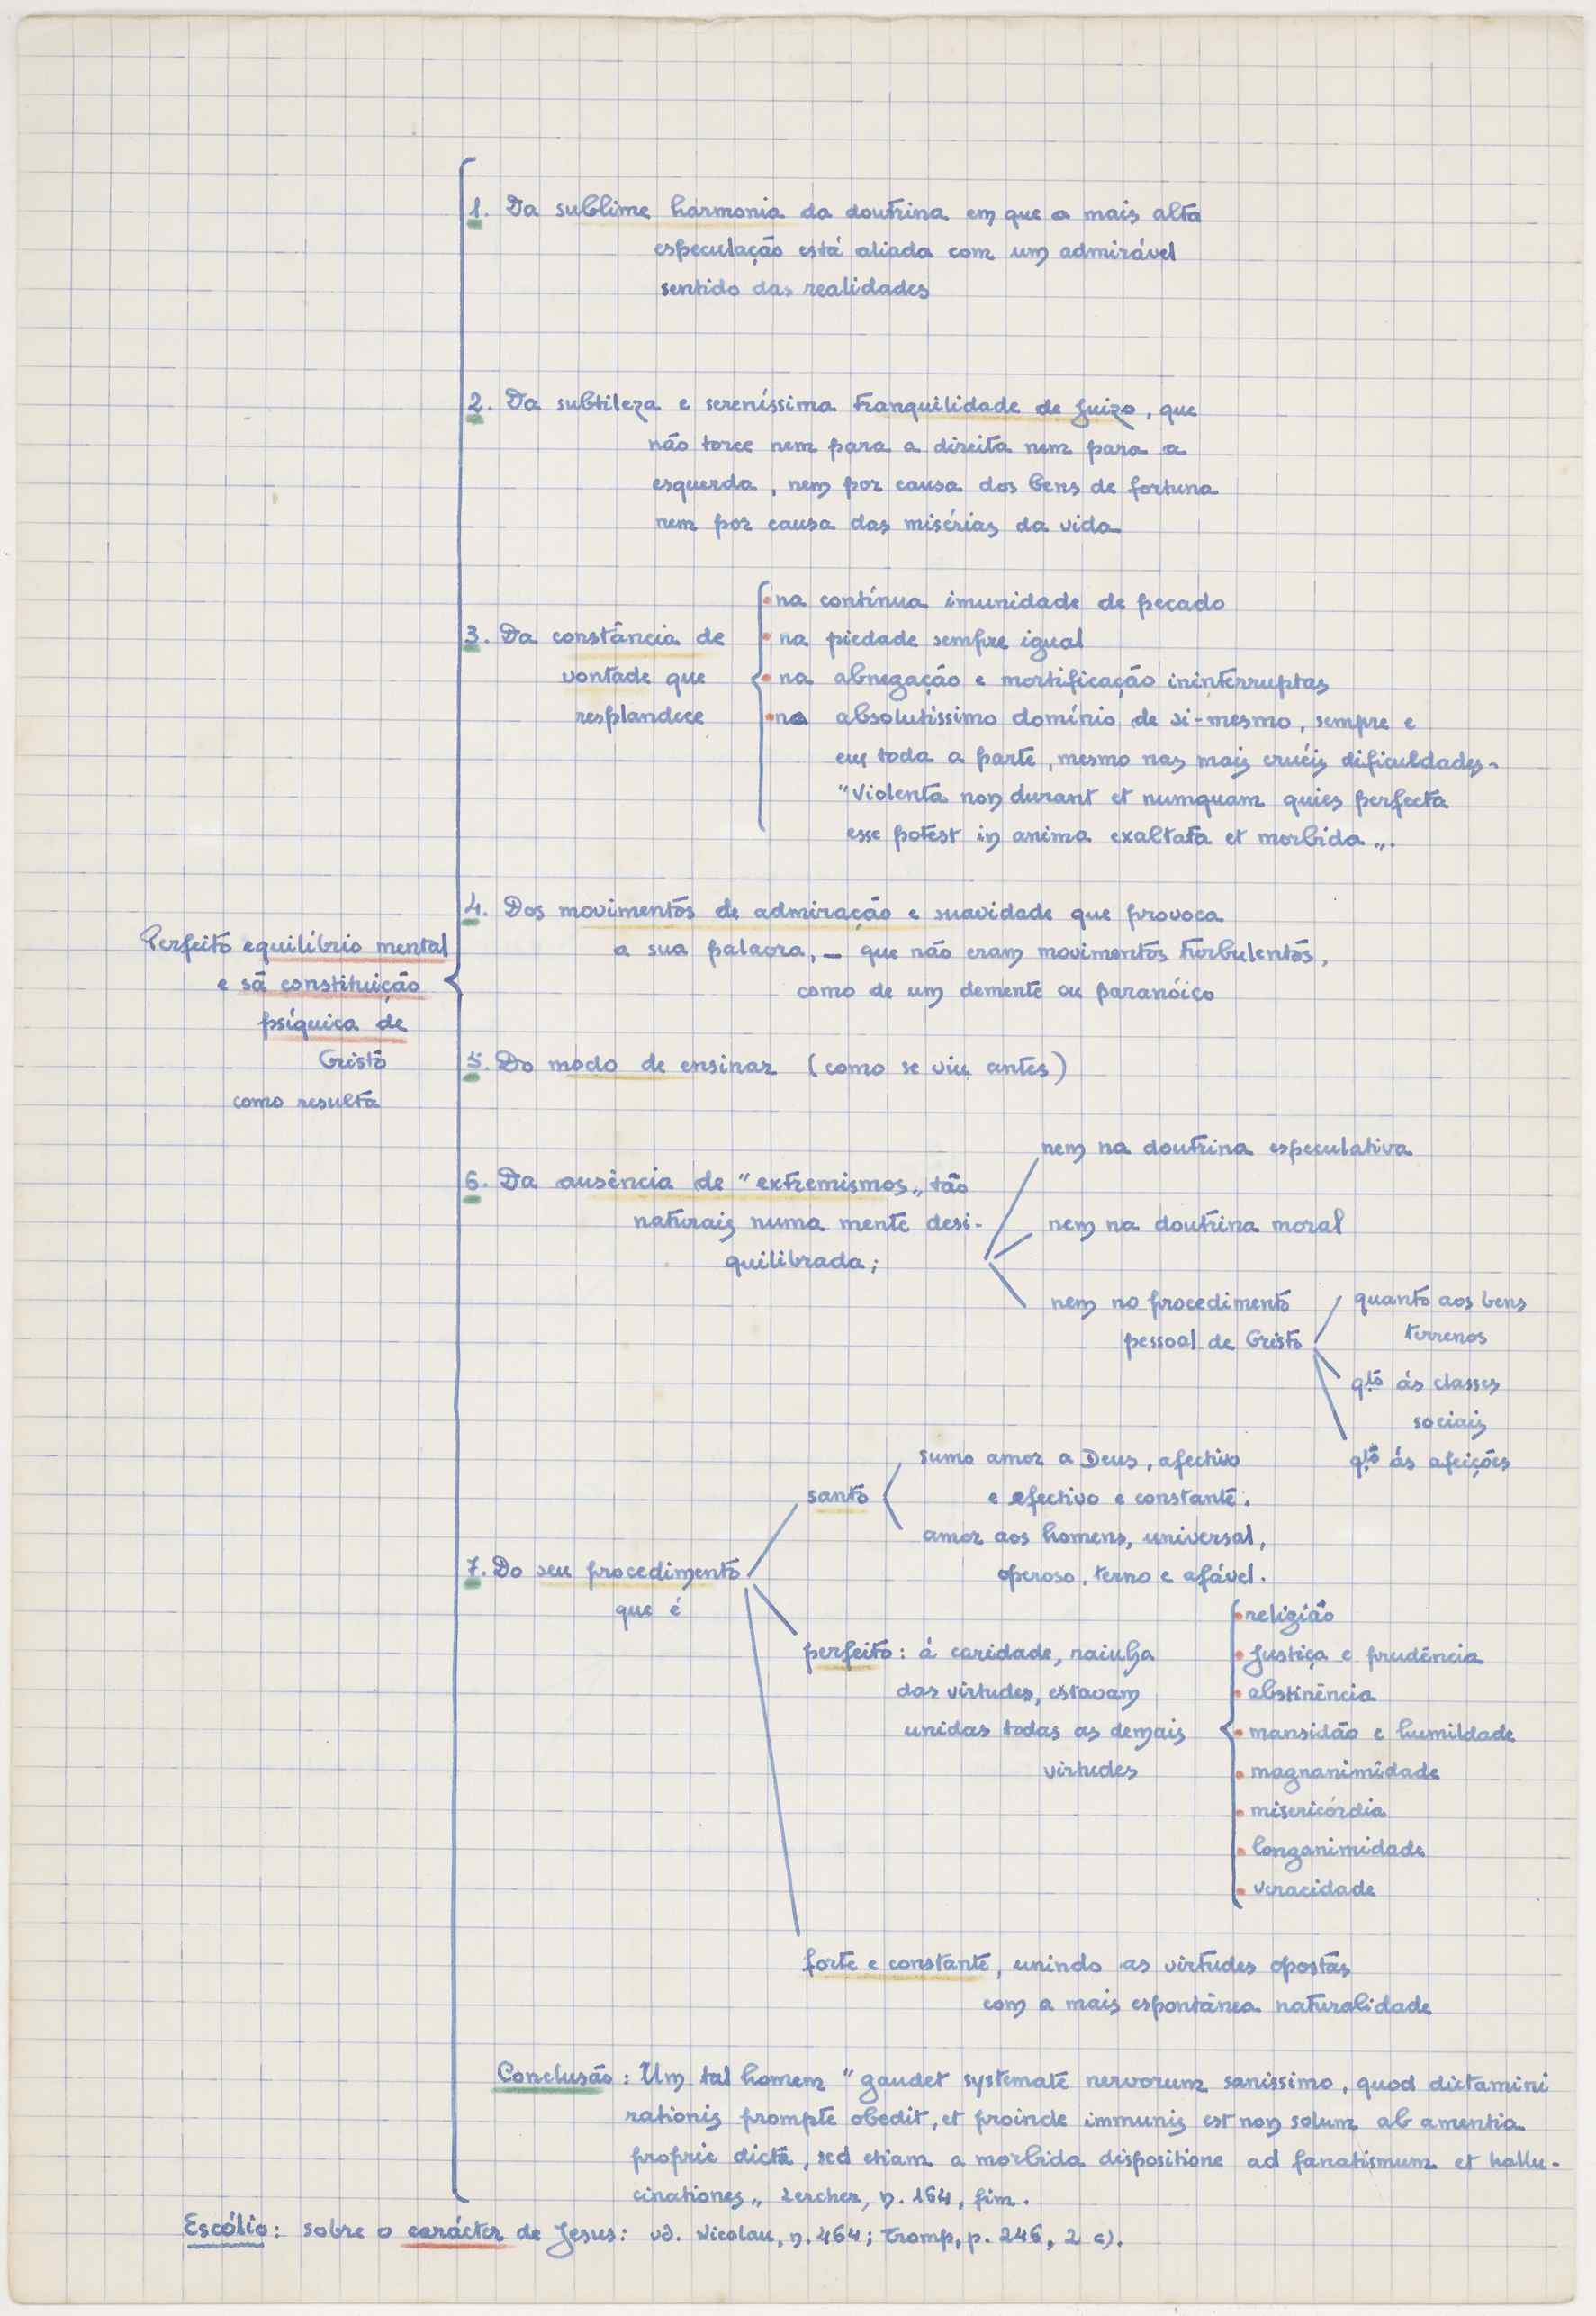 1. Da sublime harmonia da doutrina em que a mais alta
especulação está aliada com um admirável
sentido das realidades
2. Da subtileza e sereníssima tranquilidade de juizo, que
não torce nem para a direita nem para a
esquerda, nem por causa dos bens de fortuna
nem por causa das misérias da vida
3. Da constância de
vontade que
resplandece
na contínua imunidade de pecado
na piedade sempre igual
na abnegação e mortificação ininterruptas
no absolutíssimo domínio de si-mesmo, sempre e
em toda a parte, mesmo nas mais cruéis dificuldades.
"Violenta non durant et numquam quies perfecta
esse potest in anima exaltata et morbida".
4. Dos movimentos de admiração e suavidade que provoca
a sua palavra, – que não eram movimentos turbulentos,
como de um demente ou paranóico
Perfeito equilíbrio mental
e sã constituição
psíquica de
Cristo
como resulta
5. Do modo de ensinar (como se viu antes)
6. Da ausência de "extremismos" tão
naturais numa mente desi-
quilibrada;
nem na doutrina especulativa
nem na doutrina moral
nem no procedimento
pessoal de Cristo
quanto aos bens
terrenos
qto às classes
sociais
qto às afeições
7. Do seu procedimento
que é
santo
sumo amor a Deus, afectivo
e efectivo e constante.
amor aos homens, universal,
operoso, terno e afável.
perfeito: à caridade, rainha
das virtudes, estavam
unidas todas as demais
virtudes
religião
justiça e prudência
abstinência
mansidão e humildade
magnanimidade
misericórdia
longanimidade
veracidade
forte e constante, unindo as virtudes opostas
com a mais espontânea naturalidade
Conclusão: Um tal homem "gaudet systemate nervorum sanissimo, quod dictamini
rationis prompte obedit, et proinde immunis est non solum ab amentia
proprie dicta, sed etiam a morbida dispositione ad fanatismum et hallu-
cinationes" Lercher, n. 164, fim.
Escólio: sobre o carácter de Jesus: vd. Nicolau, n. 464; Tromp, p. 246, 2 c).